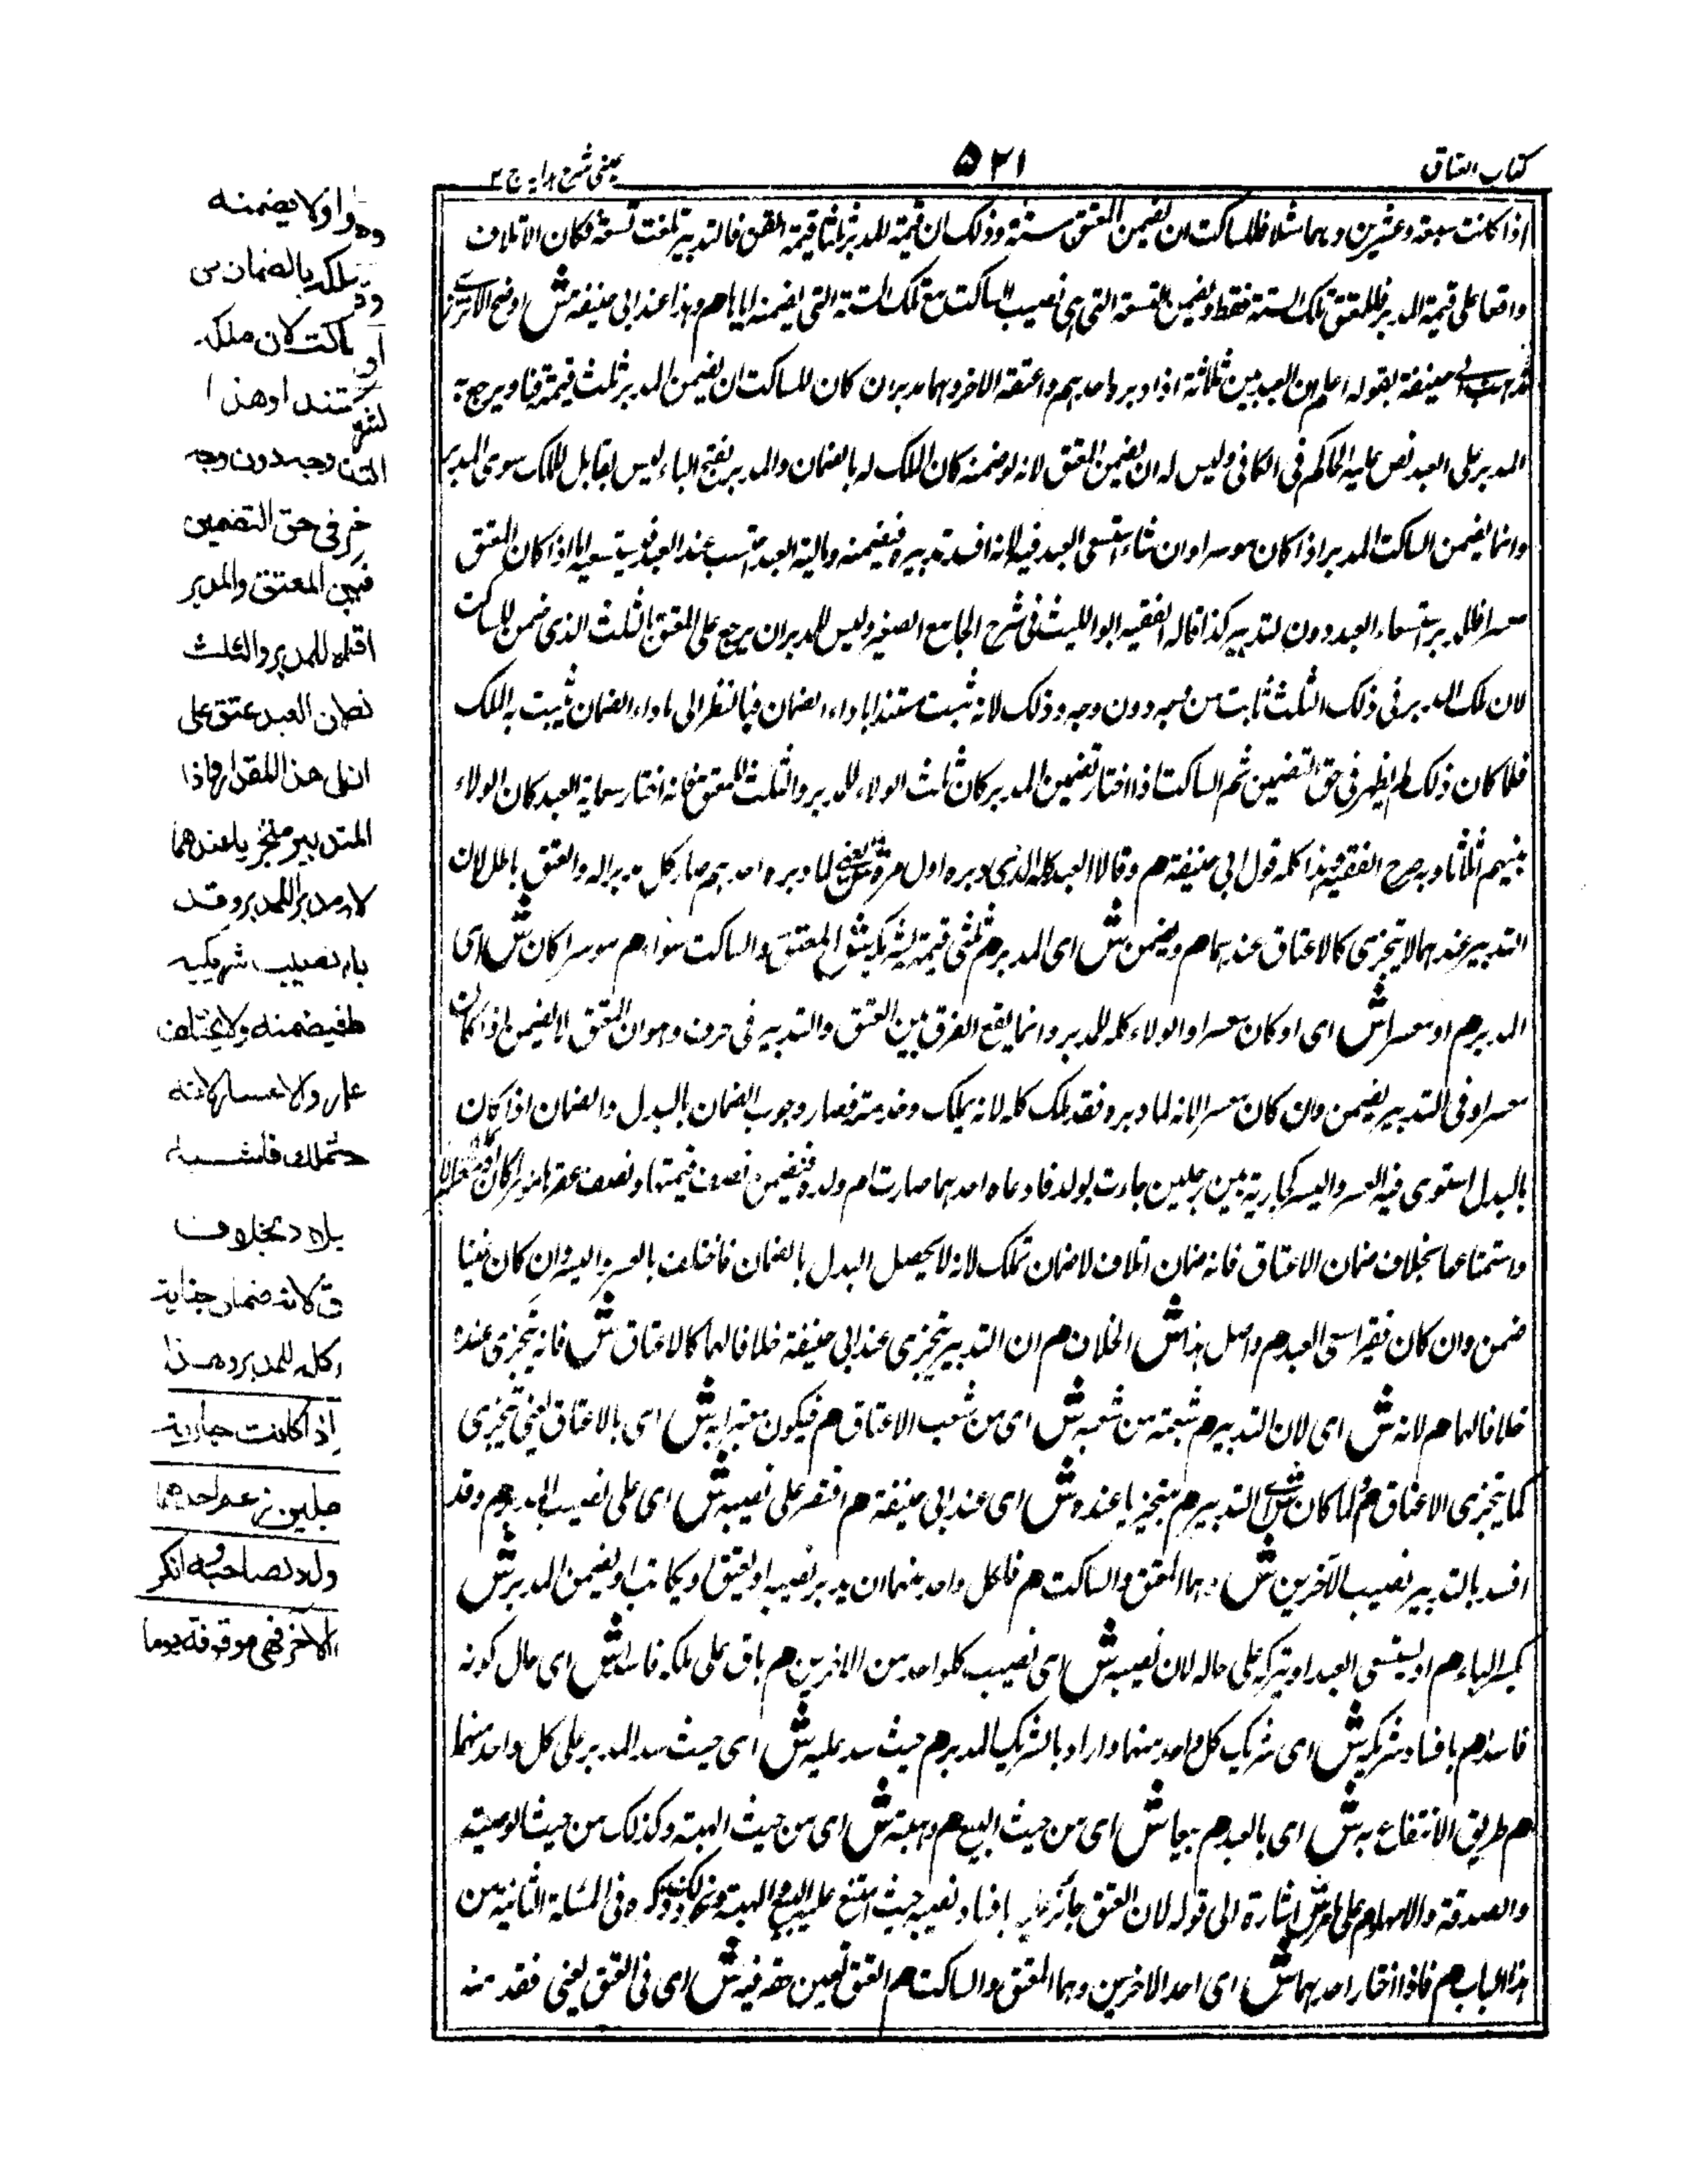 كتاب العتاق
٥٢١
عينى شرح هدايه ج ٢
اذا كانت سبعة وعشرين درهما مثلا فللساكت ان يضمن المعتق ستة وذلك ان قيمة المدبر ثلثا قيمة القن فالتدبير تلفت تسعة فكان الاتلاف
واقعا على قيمة المدبر فللمعتق تلك الستة فقط ويضمن التسعة التى هى نصيب الساكت مع تلك الستة التى يضمنه اياها م وهذا عند ابى حنيفة ش اوضح الاترازى
مذهب ابى حنيفة بقوله اعلم ان العبد بين ثلاثة اذا دبره احدهم واعتقه الاخر وهما مدبران كان للساكت ان يضمن المدبر ثلث قيمة قنا ويرجع به
المدبر على العبد نص عليه الحاكم فى الكافى وليس له ان يضمن المعتق لانه لو ضمنه كان الملك له بالضمان والمدبر بفتح الباء ليس بقابل للملك سوى المدبر
وانما يضمن الساكت المدبر اذا كان موسرا وان شاء استسعى العبد فيه لانه افسد تدبيره فيضمنه ومالية العبد احتسب عند العبد فيستسعيه اما اذا كان المعتق
معسرا فللمدبر استسعاء العبد دون التدبير كذا قاله الفقيه ابو الليث فى شرح الجامع الصغير وليس للمدبر ان يرجع على المعتق بالثلث الذى ضمن للساكت
لان ملك المدبر فى ذلك الثلث ثابت من وجه دون وجه وذلك لانه ثبت مستندا باداء الضمان فبالنظر الى اداء الضمان يثبت به الملك
فلما كان ذلك لم يظهر فى حق التضمين ثم الساكت اذا اختار تضمين المدبر كان ثلث الولاء للمدبر والثلث للمعتق فانه اختار سعاية العبد كان الولاء
بينهم اثلاثا وبه صرح الفقيه وهذا كله قول ابى حنيفة م وقالا العبد كله للذى دبره اول مرة ش يعنى لما دبره احدهم صار كله مدبرا له والعتق باطل لان
التدبير عندهما لا يتجزى كالاعتاق عندهما م ويضمن ش اى المدبر م ثلثى قيمته لشريكيه ش المعتق والساكت سواء م موسرا كان ش اى
المدبر م او معسرا ش اى او كان معسرا والولاء كله للمدبر وانما يقع الفرق بين العتق والتدبير فى حرف وهو ان المعتق لا يضمن اذا كان
معسرا وفى التدبير يضمن وان كان معسرا لانه لما دبره فقد ملك كله لانه يملك وخدمته فصار وجوب الضمان بالبدل والضمان اذا كان
بالبدل استوى فيه العسر واليسر كجارية بين رجلين جاءت بولد فادعاه احدهما صارت ام ولده فيضمن نصف قيمتها ونصف عقرها
واستمتاعها بخلاف ضمان الاعتاق فانه ضمان اتلاف لا ضمان تملك لانه لا يحصل البدل بالضمان فاختلف بالعسر واليسر وان كان غنيا
ضمن وان كان فقيرا سعى العبد م واصل هذا ش الخلاف م ان التدبير يتجزى عند ابى حنيفة خلافا لهما كالاعتاق ش فانه يتجزى عنده
خلافا لهما م لانه ش اى لان التدبير م شعبة من شعبه ش اى من شعب الاعتاق م فيكون معتبرا به ش اى بالاعتاق يعنى يتجزى
كما يتجزى الاعتاق م ولما كان ش اى التدبير م متجزيا عنده ش اى عند ابى حنيفة م اقتصر على نصيبه ش اى على نصيب المدبر م وقد
افسد بالتدبير نصيب الآخرين ش وهما المعتق والساكت م فلكل واحد منهما ان يدبر نصيبه او يعتق او يكاتب او يضمن المدبر ش
بكسر الباء م او يستسعى العبد او يتركه على حاله لان نصيبه ش اى نصيب كل واحد من الاخرين م باق على ملكه فاسدا ش اى حال كونه
فاسدا م بافساد شريكه ش اى شريك كل واحد منهما واراد بالشريك المدبر م حيث سد عليه ش اى حيث سد المدبر على كل واحد منهما
م طريق الانتفاع به ش اى بالعبد م بيعا ش اى من حيث البيع م وهبة ش اى من حيث الهبة وكذلك من حيث الوصية
والصدقة والامهار م على ما مر ش اشارة الى قوله لان المعتق جائز عليه بافساد نصيبه حيث امتنع عليه البيع والهبة ونحو ذلك ذكره فى المسئلة الثانية من
هذا الباب م فاذا اختار احدهما ش اى احد الاخرين وهما المعتق والساكت م العتق تعين حقه فيه ش اى فى العتق يعنى فقد منه
اولا يضمنه
يملكه بالضمان من
ساكت لان ملكه
يستند او هذا
وجه دون وجه
خر فى حق التضمين
فبين المعتق والمدبر
اقلاه للمدبر والثلث
نصان العبد عتق على
انلى هذا المقدار واذا
التدبير متجزيا عندهما
لا مدبرا للمدبر وقد
باه نصيب شريكيه
طفيضمنه ولا يختلف
عار والاعسار لانه
حتملك فاشبه
يلاد بخلاف
ق لانه ضمان جناية
ركله للمدبر وهذا
اذا كانت جارية
جلين زعم احدهما
ولد لصاحبه وانكر
الاخر فهى موقوفة يوما